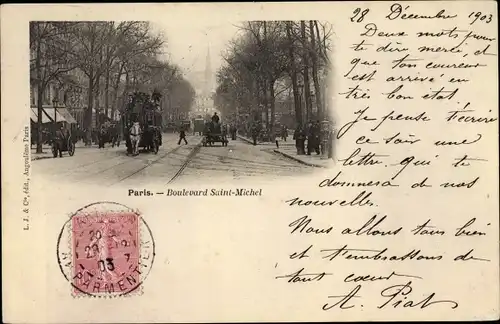 28 Décembre 1903
Deux mots pour
te dire merci et
que ton coureur
est arrivé en
très bon état.
Je pense t'écrire
ce soir une
lettre qui te
donnera de nos
nouvelles.
Nous allons tous bien
et t'embrassons de
tout cœur
A. Piat
Paris. — Boulevard Saint-Michel
L. J. & Cie, édit., Angoulême Paris
03
PARMENTIER